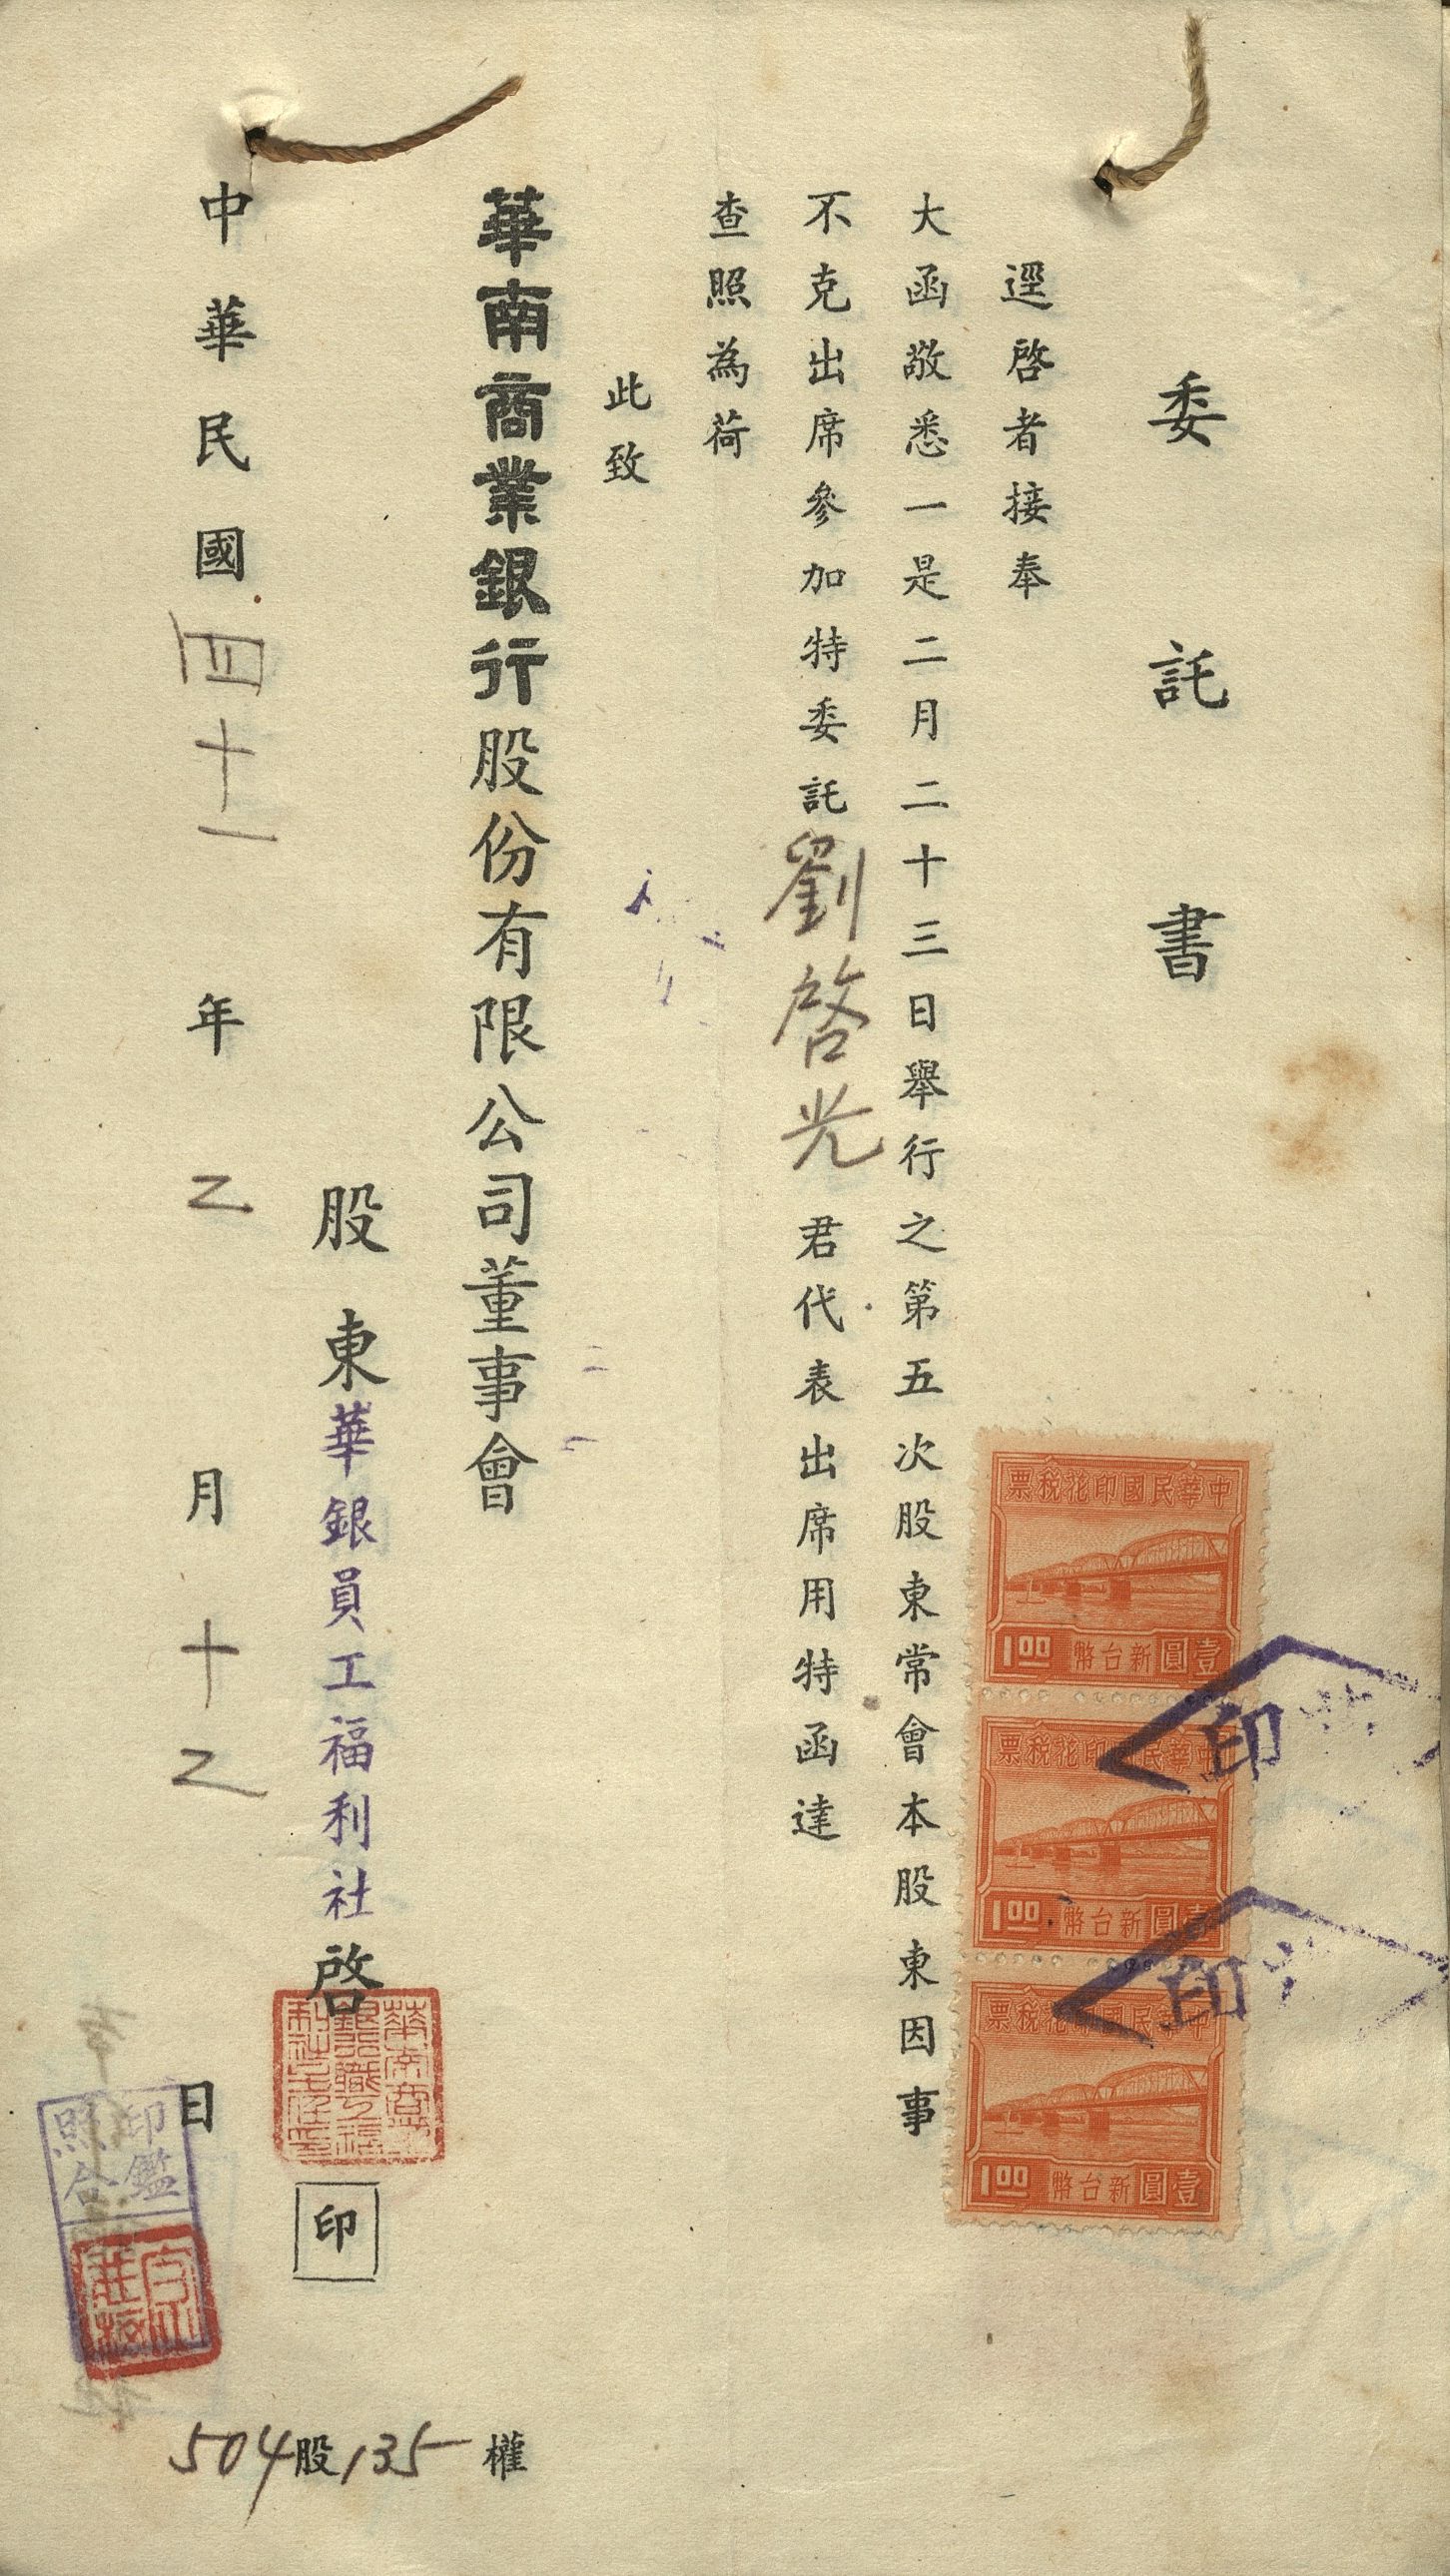 委託書
逕啓者接奉
大函敬悉一是二月二十三日舉行之第五次股東常會本股東因事
不克出席參加特委託劉啓光君代表出席用特函達
查照為荷
此致
華南商業銀行股份有限公司董事會
股東華銀員工福利社啓
印
中華民國四十一年乙月十乙日
504股135權
中華民國印花稅票
壹圓新台幣1.00
中華民國印花稅票
壹圓新台幣1.00
中華民國印花稅票
壹圓新台幣1.00
印
印
印鑑
照合